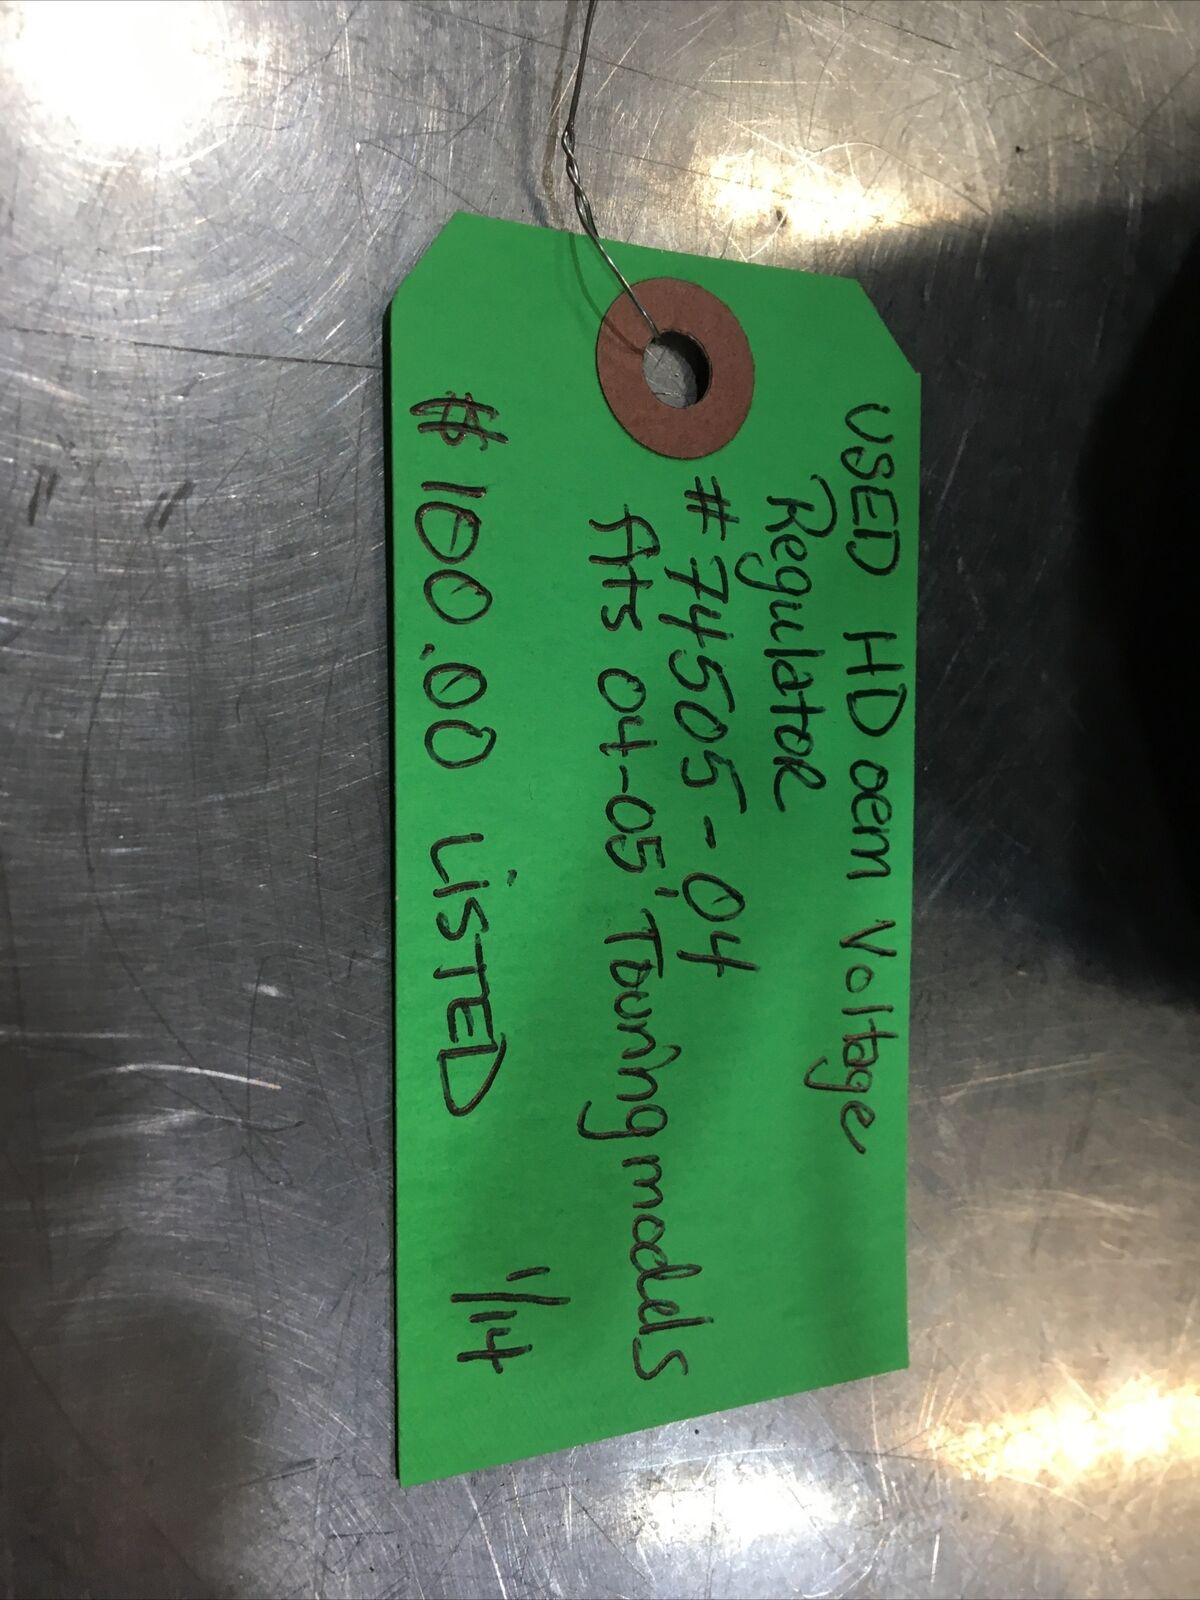 USED HD oem Voltage
Regulator
#74505-04
fits 04-05' Touring models
$100.00 LISTED 1/14